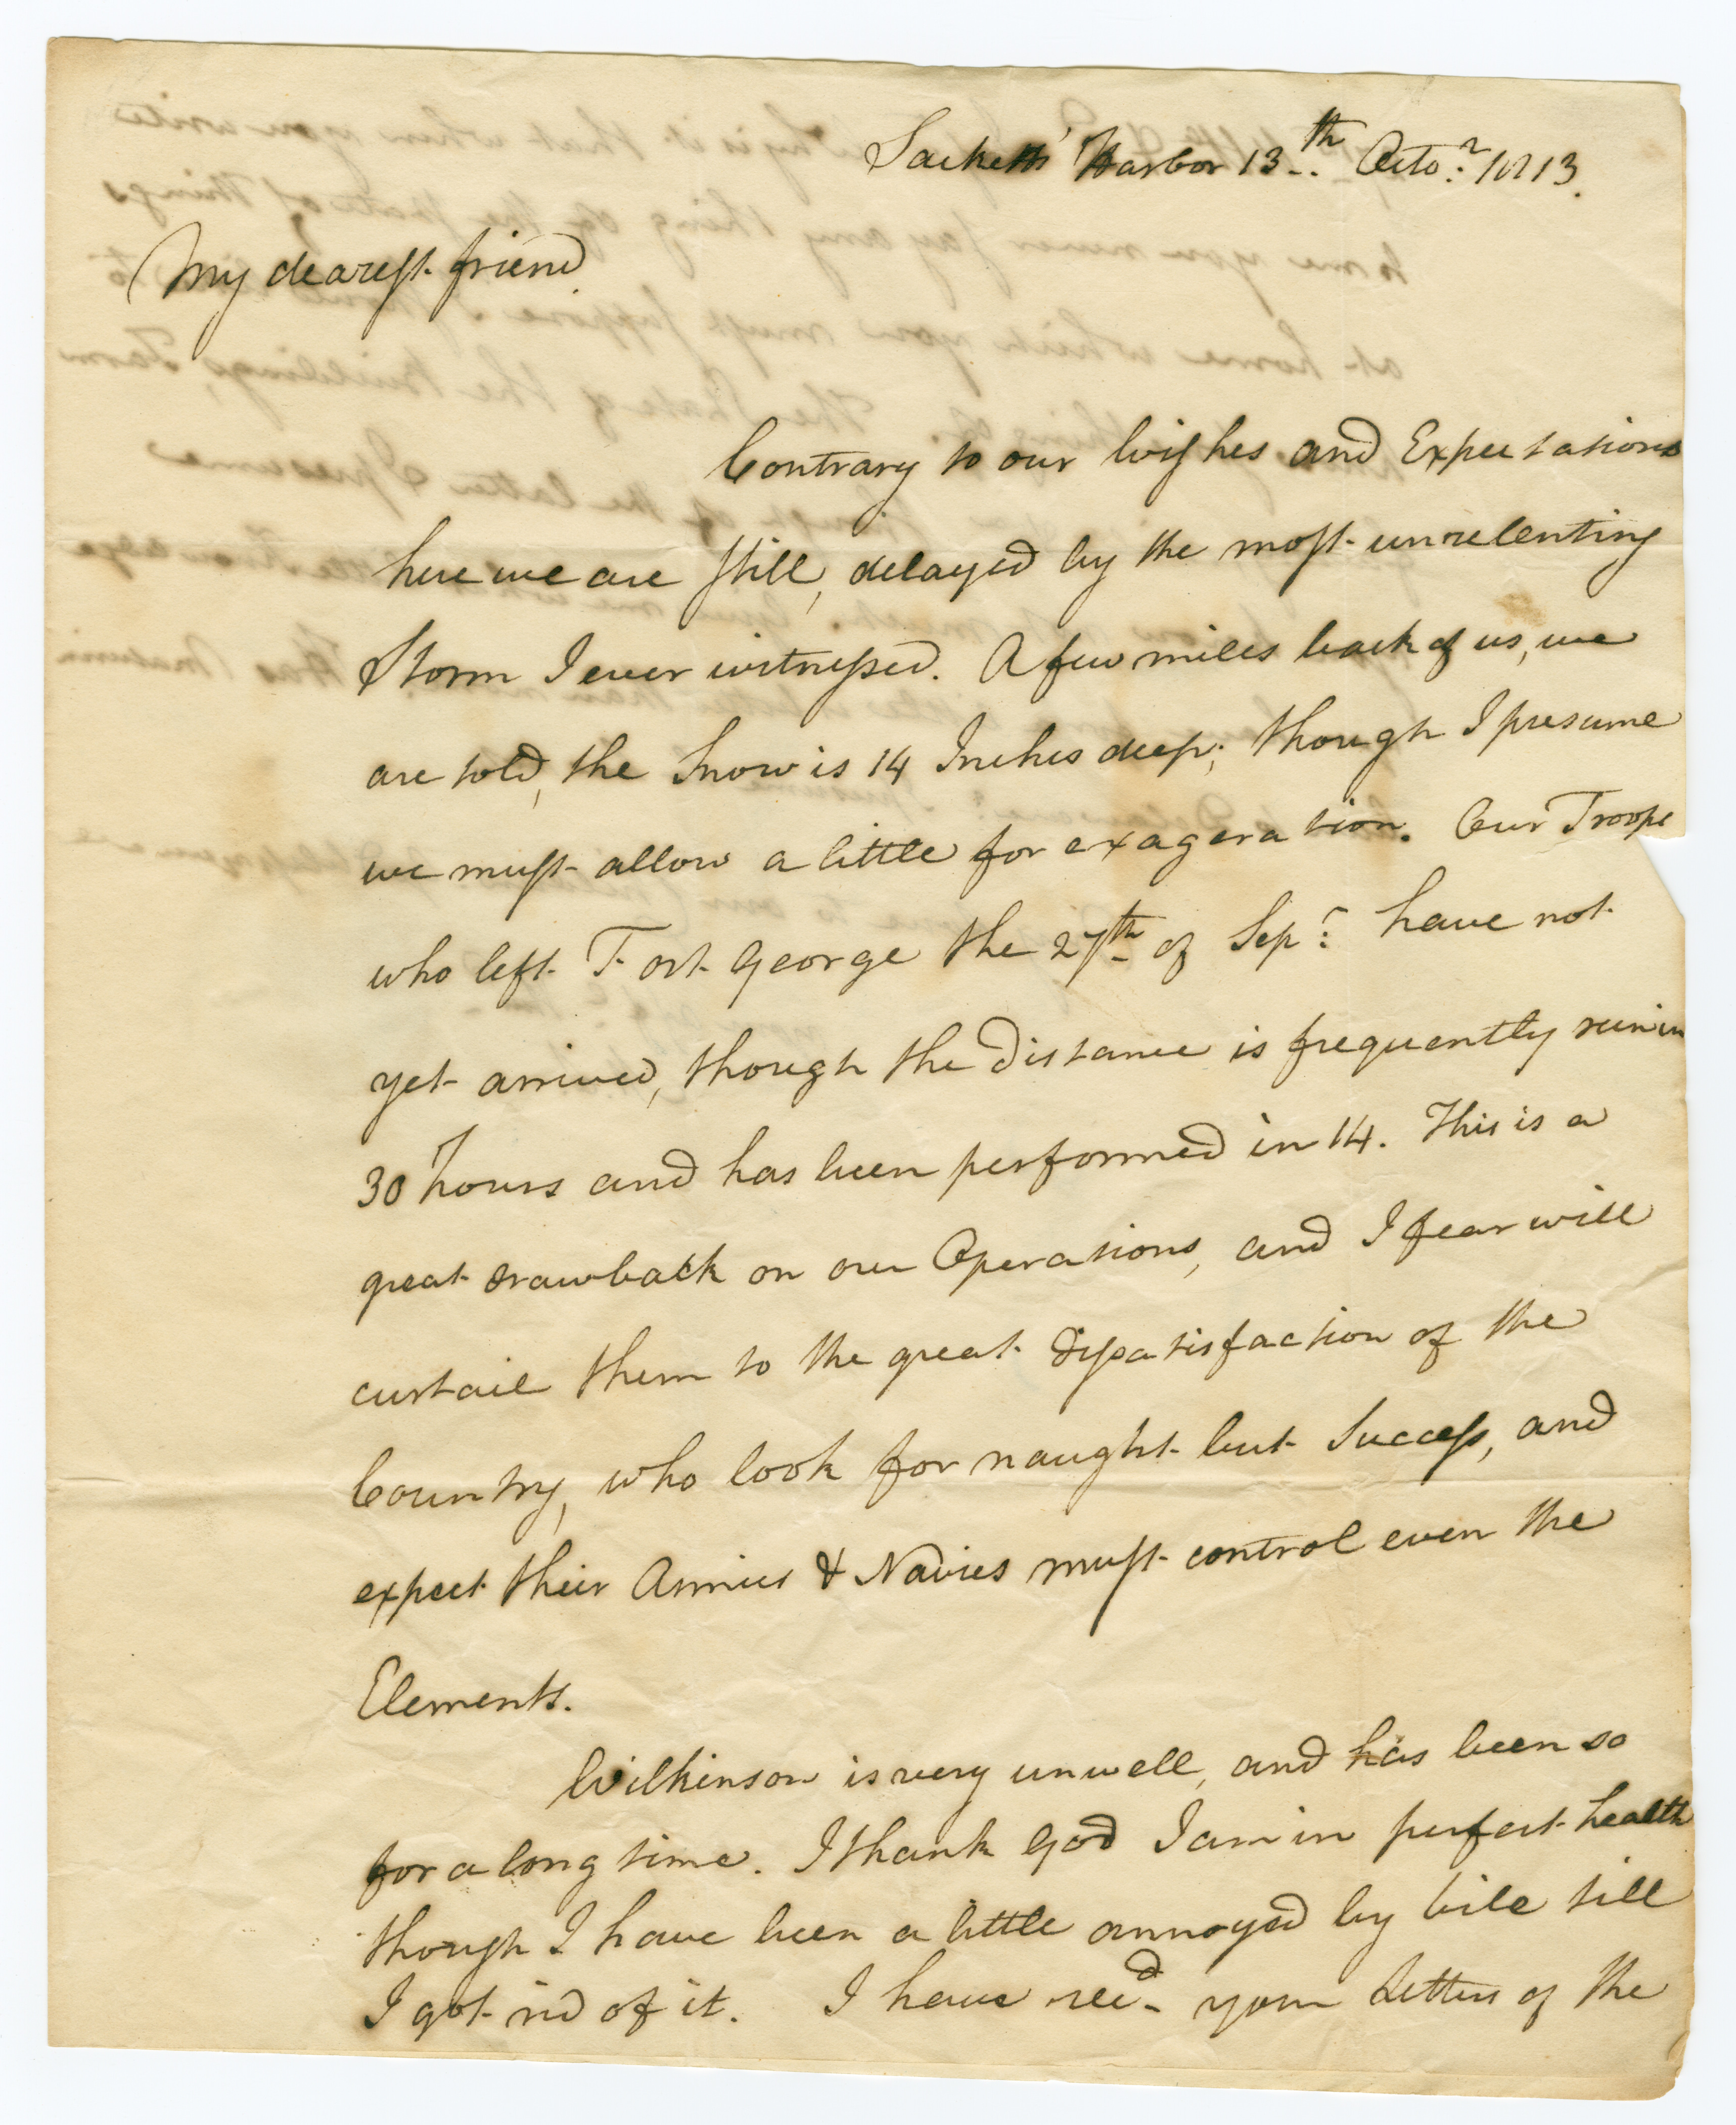 Sacketts' Harbor 13th Octo.r 1813.
My dearest friend
Contrary to our Wishes and Expectations
here we are still, delayed by the most unrelenting
Storm I ever witnessed. A few miles back of us, we
are told, the Snow is 14 Inches deep; though I presume
we must allow a little for exageration. Our Troops
who left Fort George the 27th of Sepr. have not
yet arrived, though the distance is frequently run in
30 hours and has been performed in 14. This is a
great drawback on our Operations, and I fear will
curtail them to the great dissatisfaction of the
Country, who look for naught but Success, and
expect their Armies & Navies must control even the
Elements.
Wilkinson is very unwell, and has been so
for a long time. I thank God I am in perfect health
though I have been a little annoyed by bile till
I got rid of it. I have recd your Letters of the